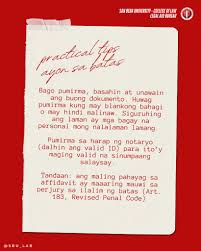 SAN BEDA UNIVERSITY - COLLEGE OF LAW
LEGAL AID BUREAU
practical tips
ayon sa batas
Bago pumirma, basahin at unawain
ang buong dokumento. Huwag
pumirma kung may blankong bahagi
o may hindi malinaw. Siguruhing
ang laman ay mga bagay na
personal mong nalalaman lamang.
Pumirma sa harap ng notaryo
(dalhin ang valid ID) para ito'y
maging valid na sinumpaang
salaysay.
Tandaan: ang maling pahayag sa
affidavit ay maaaring mauwi sa
perjury sa ilalim ng batas (Art.
183, Revised Penal Code)
@SBU_LAB